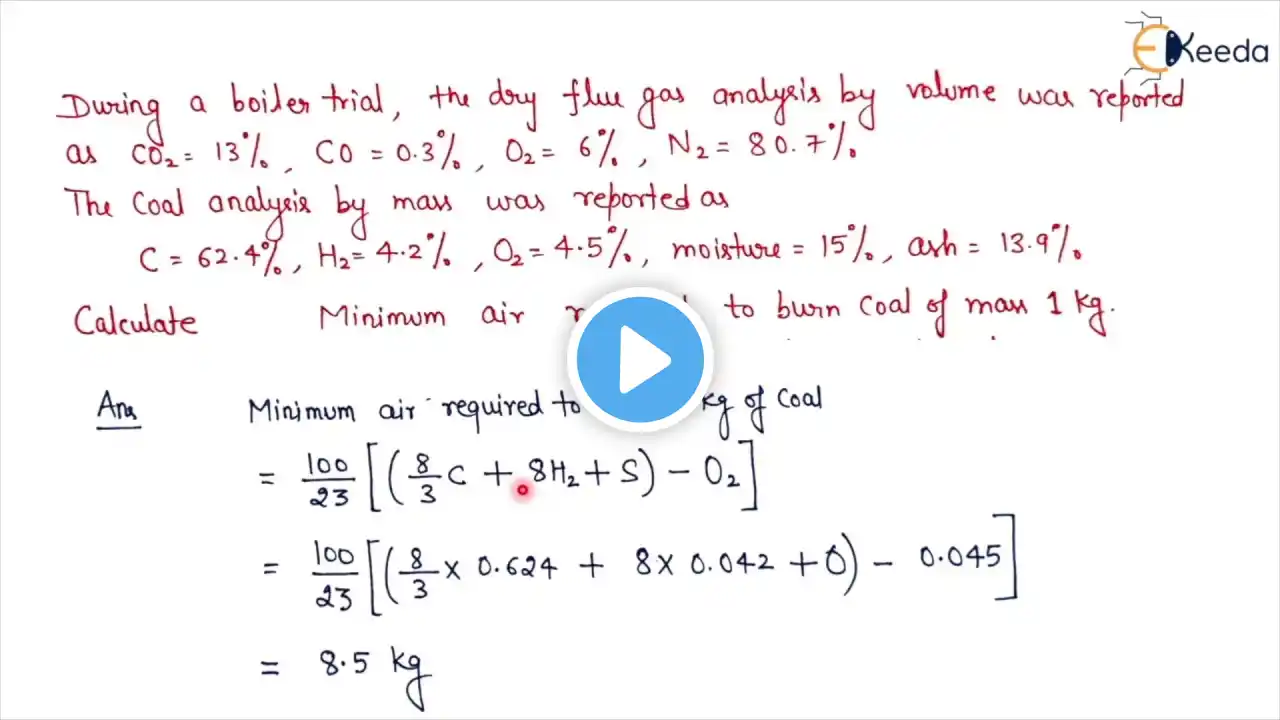 EKeeda
During a boiler trial, the dry flue gas analysis by volume was reported
as CO₂ = 13%, CO = 0.3%, O₂ = 6%, N₂ = 80.7%
The Coal analysis by mass was reported as
C = 62.4%, H₂ = 4.2%, O₂ = 4.5%, moisture = 15%, ash = 13.9%
Calculate Minimum air to burn Coal of mass 1 kg.
Ans Minimum air required to kg of Coal
= 100/23 [(8/3 C + 8H₂ + S) - O₂]
= 100/23 [(8/3 × 0.624 + 8 × 0.042 + 0) - 0.045]
= 8.5 kg